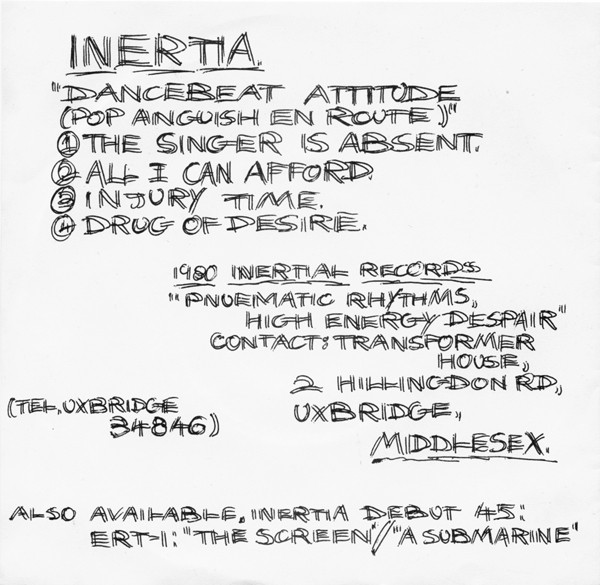 INERTIA.
"DANCEBEAT ATTITUDE
(POP ANGUISH EN ROUTE)"
① THE SINGER IS ABSENT.
② ALL I CAN AFFORD.
③ INJURY TIME.
④ DRUG OF DESIRE.
1980 INERTIAL RECORDS
"PNUEMATIC RHYTHMS,
HIGH ENERGY DESPAIR"
CONTACT: TRANSFORMER
HOUSE,
2 HILLINGDON RD,
(TEL. UXBRIDGE
UXBRIDGE,
34846)
MIDDLESEX.
ALSO AVAILABLE, INERTIA DEBUT 45:
ERT>1: "THE SCREEN"/"A SUBMARINE"